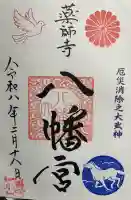 厄災消除之大武神
薬師寺
八幡宮
令和八年二月十八日